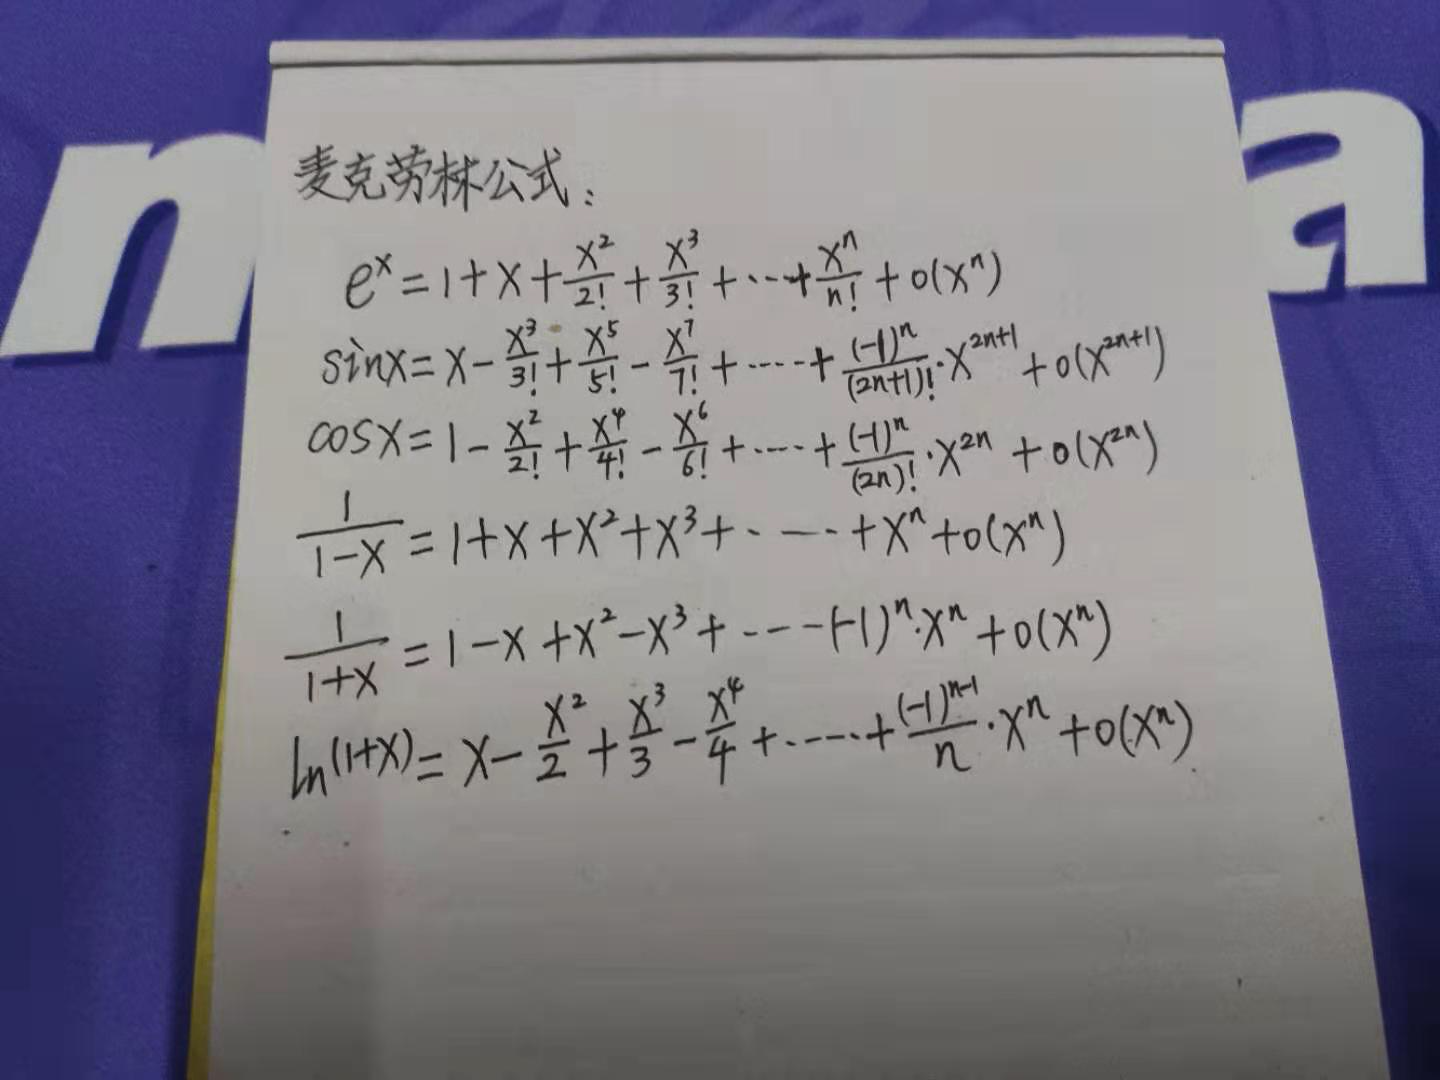 麦克劳林公式：
e^x = 1 + x + x²/2! + x³/3! + ··· + x^n/n! + o(x^n)
sinx = x - x³/3! + x⁵/5! - x⁷/7! + ····· + (-1)^n/(2n+1)! · x^(2n+1) + o(x^(2n+1))
cosx = 1 - x²/2! + x⁴/4! - x⁶/6! + ····· + (-1)^n/(2n)! · x^(2n) + o(x^(2n))
1/(1-x) = 1 + x + x² + x³ + ····· + x^n + o(x^n)
1/(1+x) = 1 - x + x² - x³ + ···· (-1)^n · x^n + o(x^n)
ln(1+x) = x - x²/2 + x³/3 - x⁴/4 + ····· + (-1)^(n-1)/n · x^n + o(x^n)